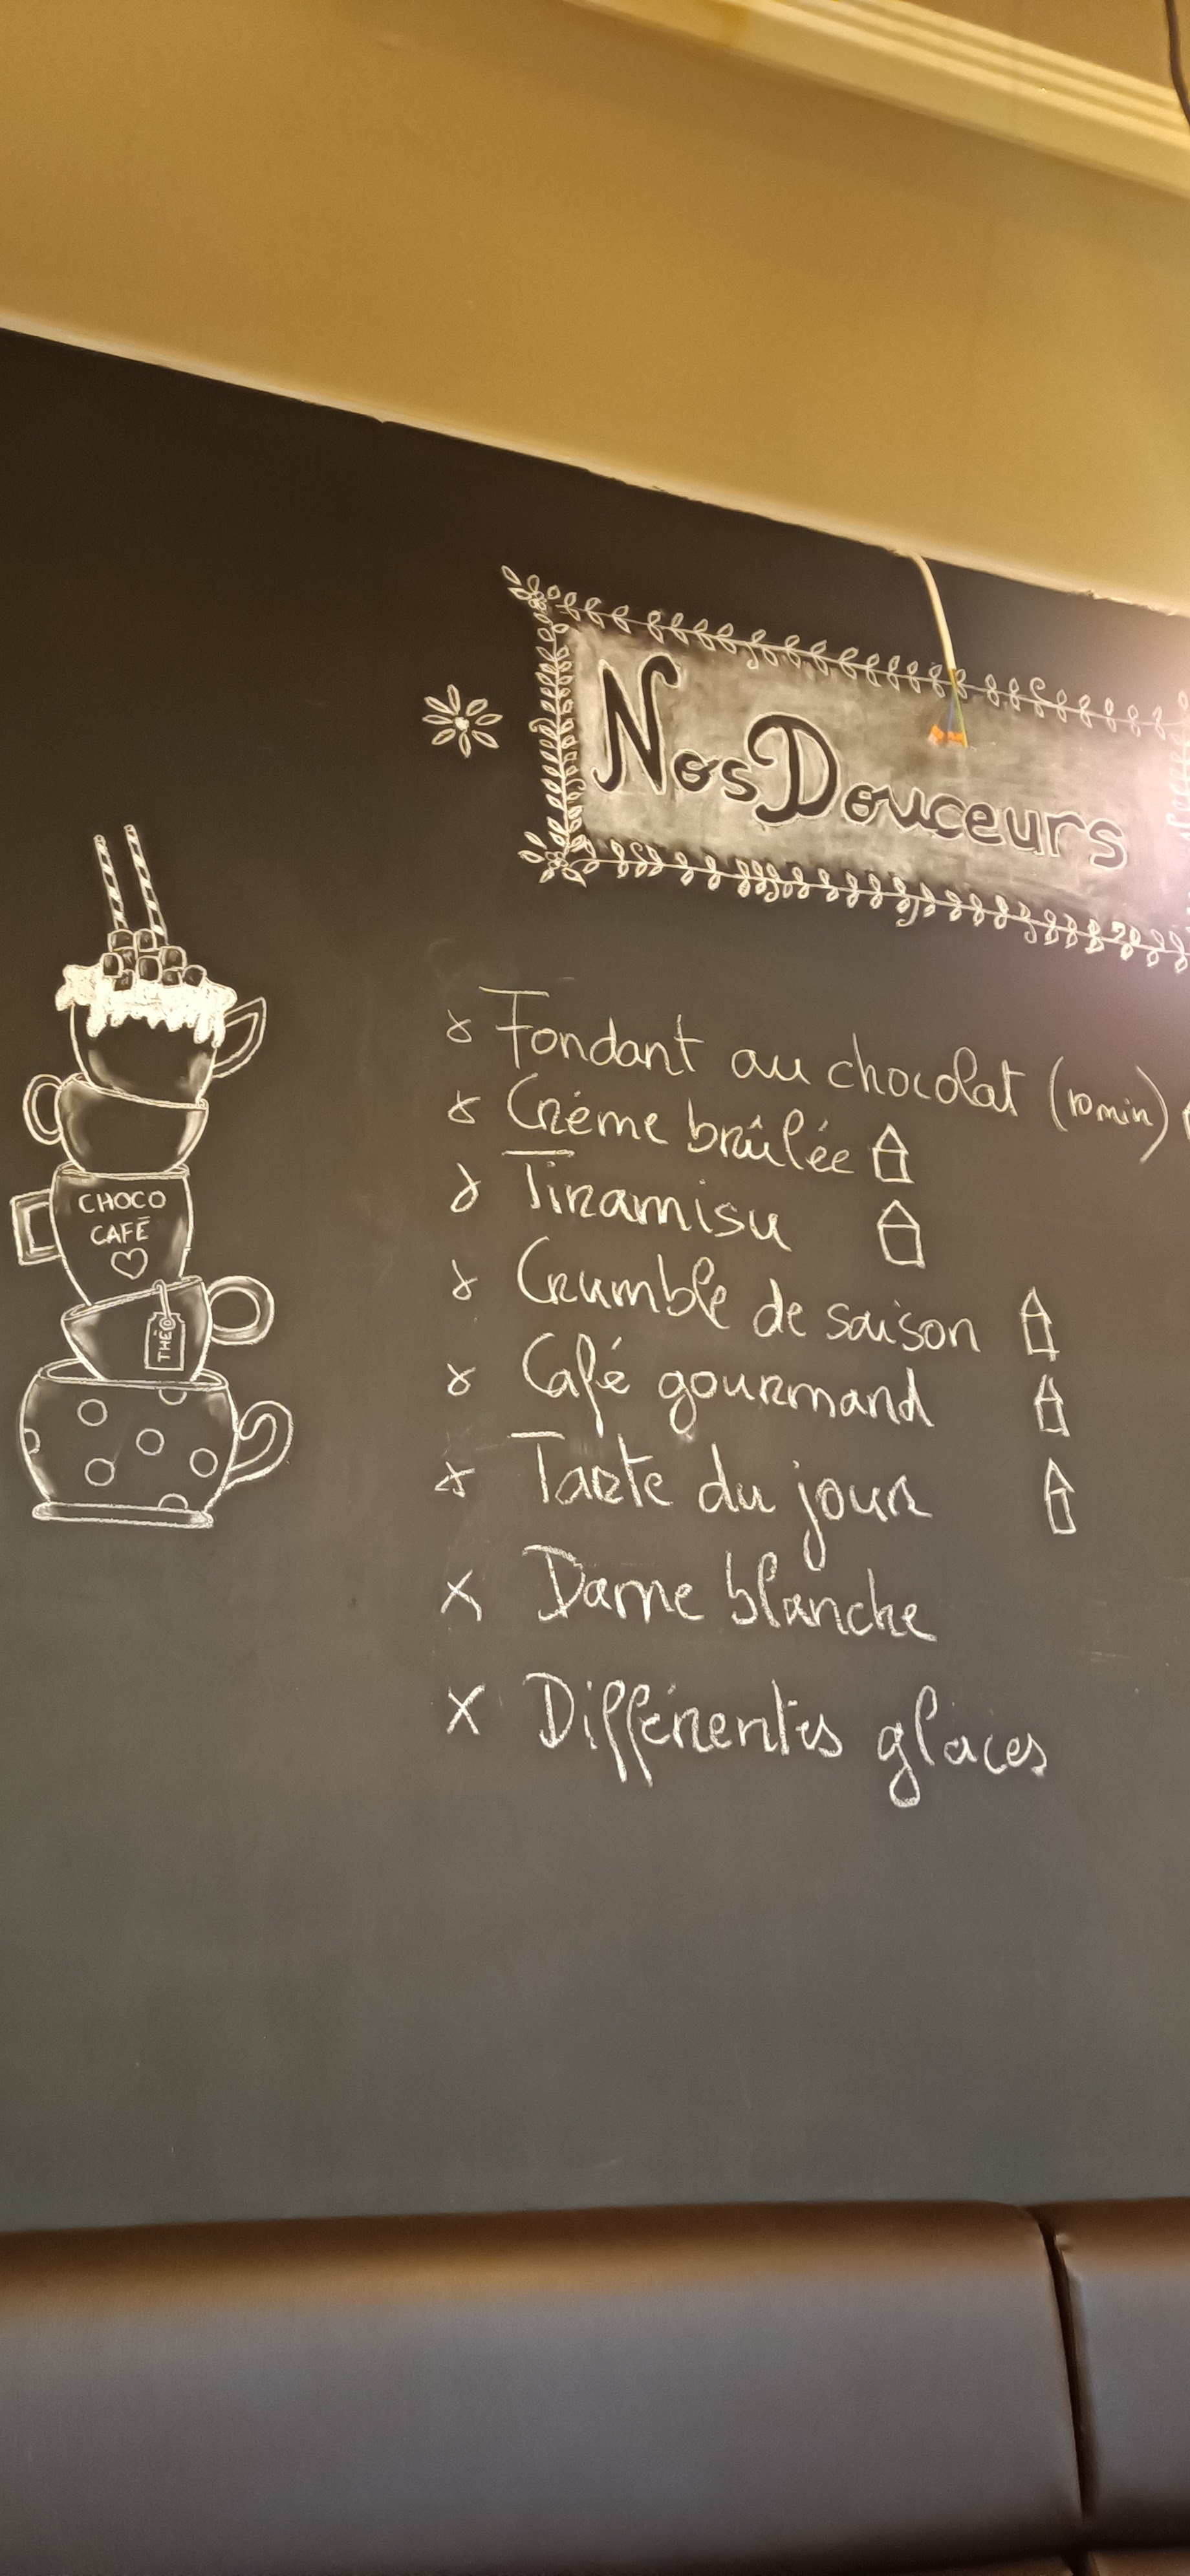 Nos Douceurs
Fondant au chocolat (10min)
Crème brûlée
Tiramisu
Crumble de saison
Café gourmand
Tarte du jour
Dame blanche
Différentes glaces
CHOCO
CAFÉ
THÉ